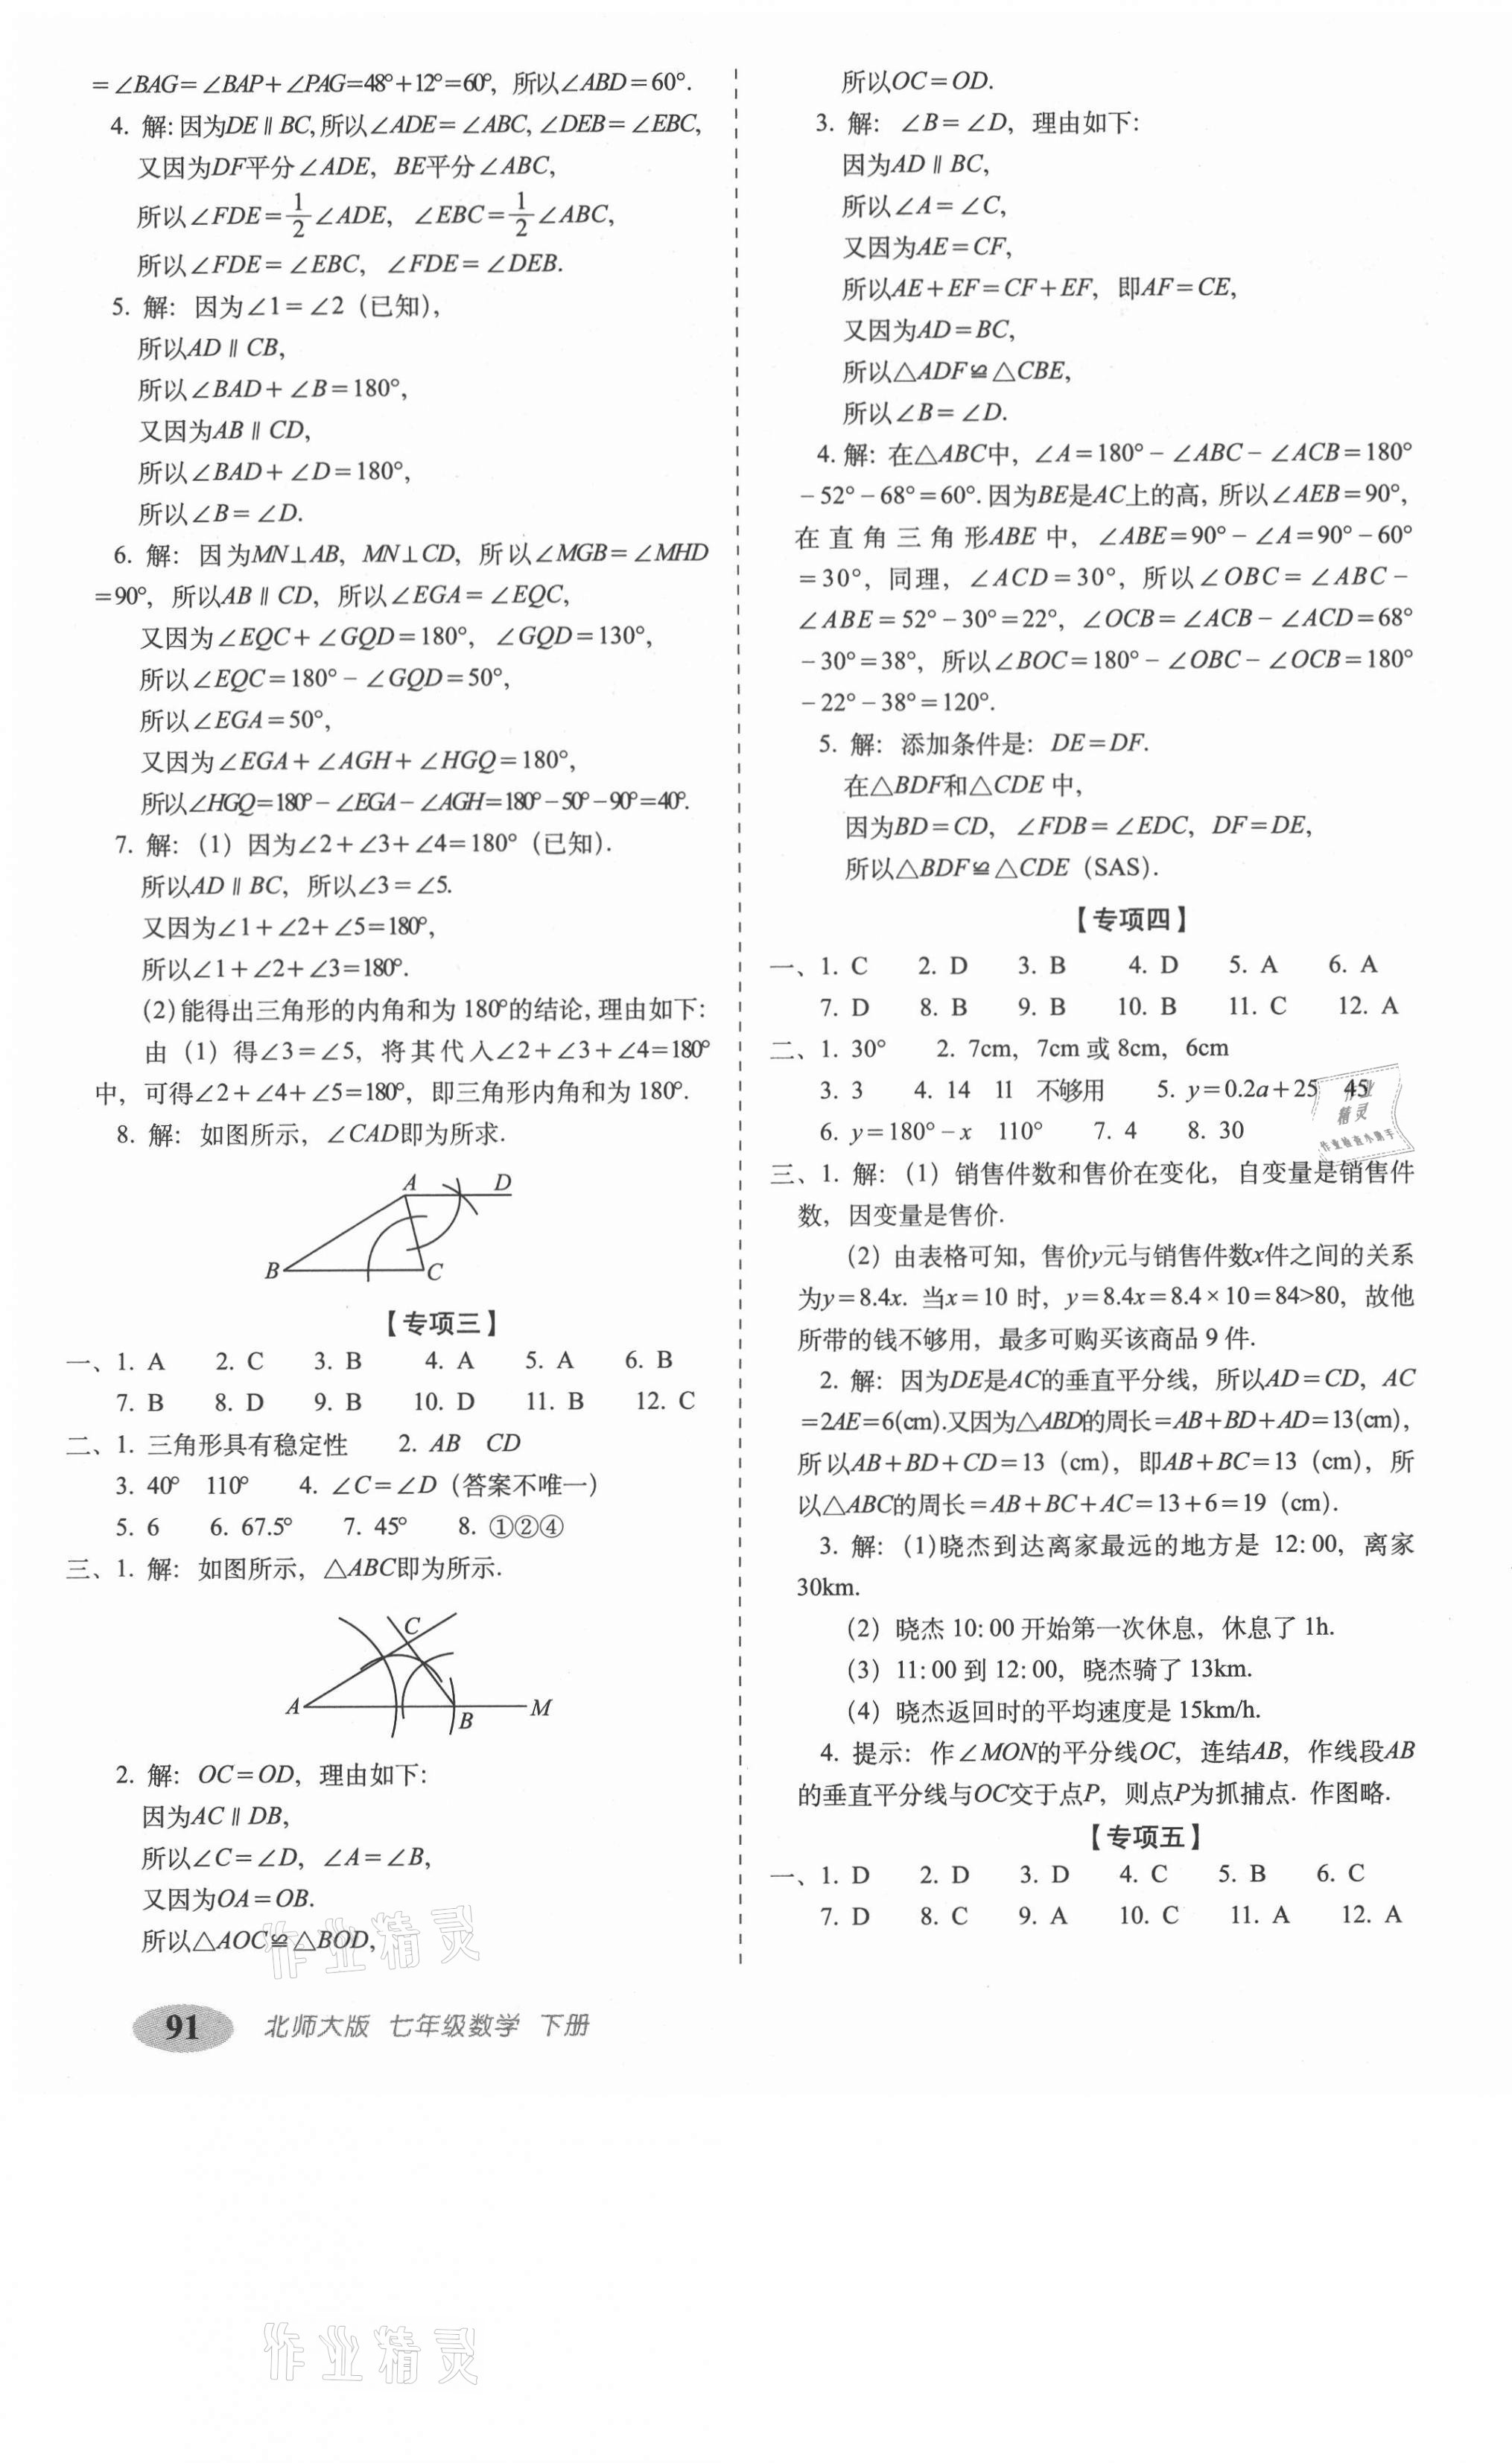 =∠BAG=∠BAP+∠PAG=48°+12°=60°，所以∠ABD=60°.
4. 解：因为DE∥BC，所以∠ADE=∠ABC，∠DEB=∠EBC，
又因为DF平分∠ADE，BE平分∠ABC，
所以∠FDE=1/2∠ADE，∠EBC=1/2∠ABC，
所以∠FDE=∠EBC，∠FDE=∠DEB.
5. 解：因为∠1=∠2（已知），
所以AD∥CB，
所以∠BAD+∠B=180°，
又因为AB∥CD，
所以∠BAD+∠D=180°，
所以∠B=∠D.
6. 解：因为MN⊥AB，MN⊥CD，所以∠MGB=∠MHD
=90°，所以AB∥CD，所以∠EGA=∠EQC，
又因为∠EQC+∠GQD=180°，∠GQD=130°，
所以∠EQC=180°-∠GQD=50°，
所以∠EGA=50°，
又因为∠EGA+∠AGH+∠HGQ=180°，
所以∠HGQ=180°-∠EGA-∠AGH=180°-50°-90°=40°.
7. 解：（1）因为∠2+∠3+∠4=180°（已知）.
所以AD∥BC，所以∠3=∠5.
又因为∠1+∠2+∠5=180°，
所以∠1+∠2+∠3=180°.
（2）能得出三角形的内角和为180°的结论，理由如下：
由（1）得∠3=∠5，将其代入∠2+∠3+∠4=180°
中，可得∠2+∠4+∠5=180°，即三角形内角和为180°.
8. 解：如图所示，∠CAD即为所求.
A D
B C
【专项三】
一、1. A 2. C 3. B 4. A 5. A 6. B
7. B 8. D 9. B 10. D 11. B 12. C
二、1. 三角形具有稳定性 2. AB CD
3. 40° 110° 4. ∠C=∠D（答案不唯一）
5. 6 6. 67.5° 7. 45° 8. ①②④
三、1. 解：如图所示，△ABC即为所示.
C
A B M
2. 解：OC=OD，理由如下：
因为AC∥DB，
所以∠C=∠D，∠A=∠B，
又因为OA=OB.
所以△AOC≌△BOD，
作业精灵
91 北师大版 七年级数学 下册
所以OC=OD.
3. 解：∠B=∠D，理由如下：
因为AD∥BC，
所以∠A=∠C，
又因为AE=CF，
所以AE+EF=CF+EF，即AF=CE，
又因为AD=BC，
所以△ADF≌△CBE，
所以∠B=∠D.
4. 解：在△ABC中，∠A=180°-∠ABC-∠ACB=180°
-52°-68°=60°.因为BE是AC上的高，所以∠AEB=90°，
在直角三角形ABE中，∠ABE=90°-∠A=90°-60°
=30°，同理，∠ACD=30°，所以∠OBC=∠ABC-
∠ABE=52°-30°=22°，∠OCB=∠ACB-∠ACD=68°
-30°=38°，所以∠BOC=180°-∠OBC-∠OCB=180°
-22°-38°=120°.
5. 解：添加条件是：DE=DF.
在△BDF和△CDE中，
因为BD=CD，∠FDB=∠EDC，DF=DE，
所以△BDF≌△CDE（SAS）.
【专项四】
一、1. C 2. D 3. B 4. D 5. A 6. A
7. D 8. B 9. B 10. B 11. C 12. A
二、1. 30° 2. 7cm，7cm或8cm，6cm
3. 3 4. 14 11 不够用 5. y=0.2a+25 45
6. y=180°-x 110° 7. 4 8. 30
作业
精灵
作业检查小助手
三、1. 解：（1）销售件数和售价在变化，自变量是销售件
数，因变量是售价.
（2）由表格可知，售价y元与销售件数x件之间的关系
为y=8.4x. 当x=10时，y=8.4x=8.4×10=84>80，故他
所带的钱不够用，最多可购买该商品9件.
2. 解：因为DE是AC的垂直平分线，所以AD=CD，AC
=2AE=6(cm).又因为△ABD的周长=AB+BD+AD=13(cm)，
所以AB+BD+CD=13（cm），即AB+BC=13（cm），所
以△ABC的周长=AB+BC+AC=13+6=19（cm）.
3. 解：（1）晓杰到达离家最远的地方是12:00，离家
30km.
（2）晓杰10:00开始第一次休息，休息了1h.
（3）11:00到12:00，晓杰骑了13km.
（4）晓杰返回时的平均速度是15km/h.
4. 提示：作∠MON的平分线OC，连结AB，作线段AB
的垂直平分线与OC交于点P，则点P为抓捕点. 作图略.
【专项五】
一、1. D 2. D 3. D 4. C 5. B 6. C
7. D 8. C 9. A 10. C 11. A 12. A
作业精灵